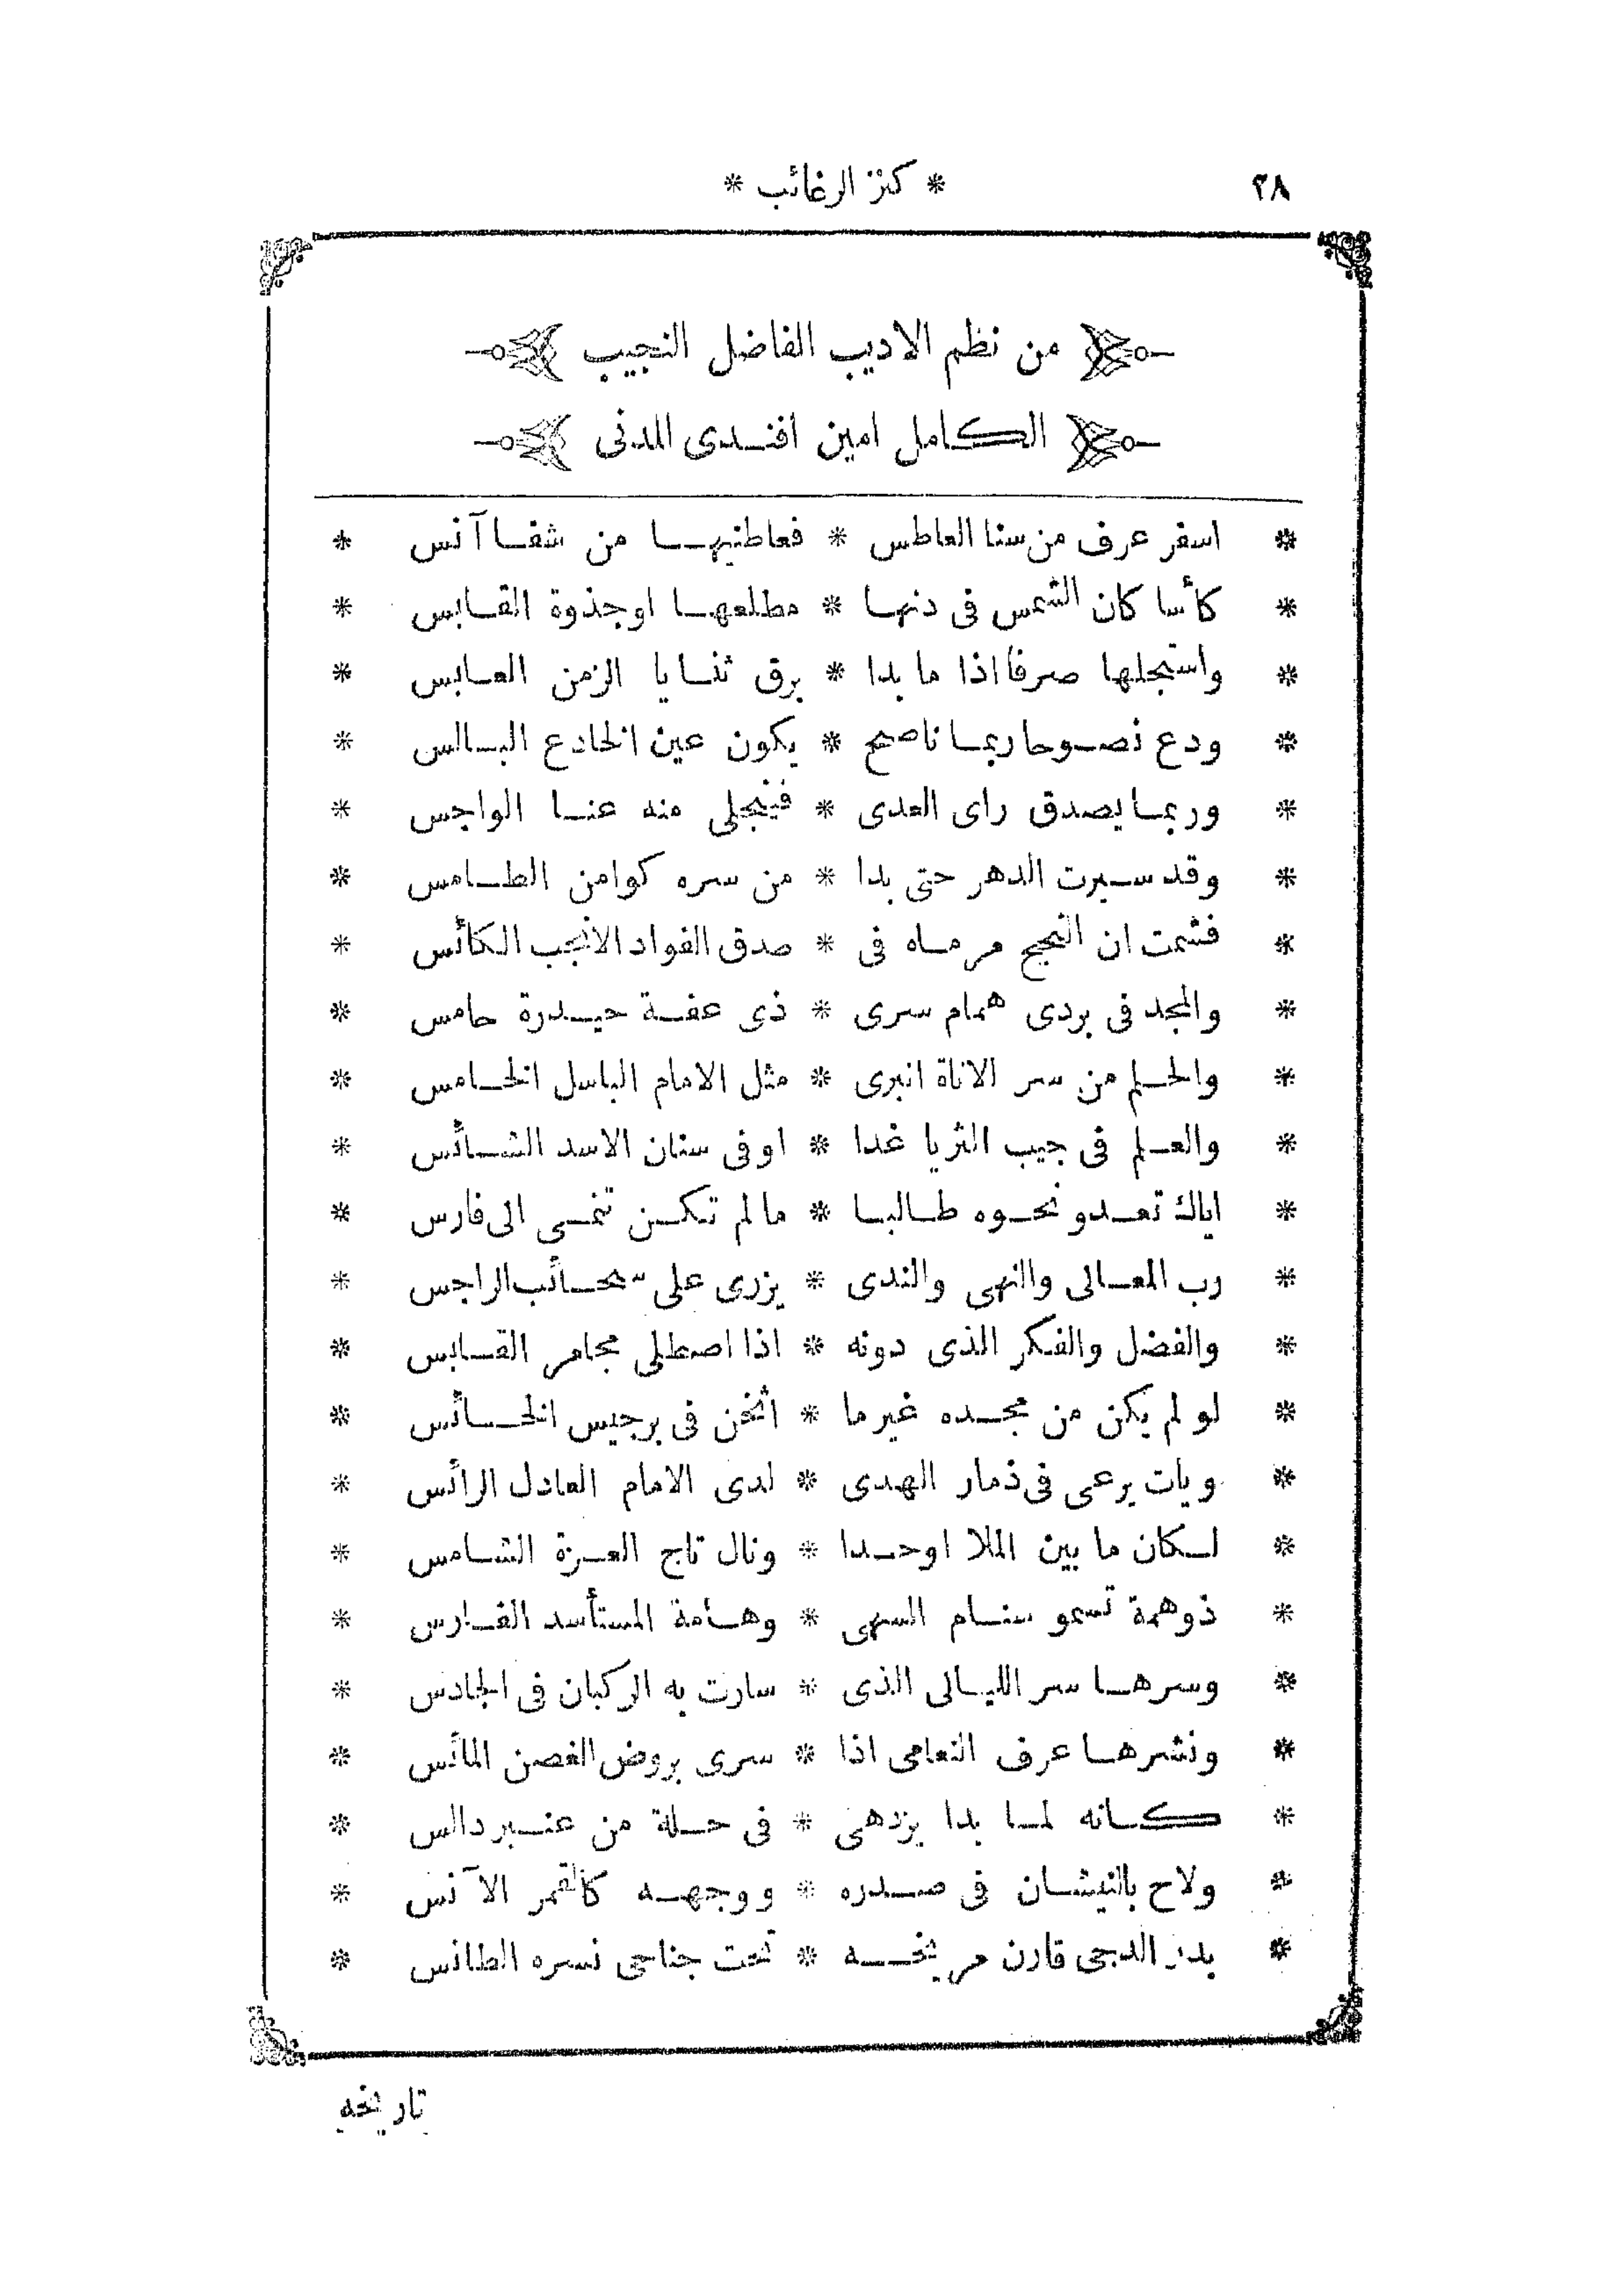 ٢٨ * كنز الرغائب *
من نظم الاديب الفاضل النجيب
الكامل امين افندى المدنى
* اسفر عرف من سنا العاطس * فعاطنيها من شفا آنس *
* كأسا كان الشمس فى دنها * مطلعها اوجذوة القابس *
* واستجلها صرفا اذا ما بدا * برق ثنايا الزمن العابس *
* ودع نصوحا ربما ناصح * يكون عين الخادع البالس *
* وربما يصدق راى العدى * فينجلى منه عنا الواجس *
* وقد سبرت الدهر حتى بدا * من سره كوامن الطامس *
* فشمت ان النجح مرماه فى * صدق الفواد الانجب الكائس *
* والمجد فى بردى همام سرى * ذى عفة حيدرة حامس *
* والحلم من سر الاناة انبرى * مثل الامام الباسل الخامس *
* والعلم فى جيب الثريا غدا * اوفى سنان الاسد الشائس *
* اياك تعدو نحوه طالبا * مالم تكن تنمى الى فارس *
* رب المعالى والنهى والندى * يزرى على سحائب الراجس *
* والفضل والفكر الذى دونه * اذا اصطلى مجامر القابس *
* لو لم يكن من مجده غير ما * اثخن فى برجيس الخائس *
* وبات يرعى فى ذمار الهدى * لدى الامام العادل الرائس *
* لكان ما بين الملا اوحدا * ونال تاج العزة الشامس *
* ذوهمة تسمو سنام السهى * وهامة المستأسد الفارس *
* وسرها سر الليالى الذى * سارت به الركبان فى الجادس *
* ونشرها عرف النعامى اذا * سرى بروض الغصن المائس *
* كانه لما بدا يزدهى * فى حلة من عنبر دالس *
* ولاح بالنيشان فى صدره * ووجهه كالقمر الآنس *
* بدر الدجى قارن مريخه * تحت جناحى نسره الطانس *
تاريخه